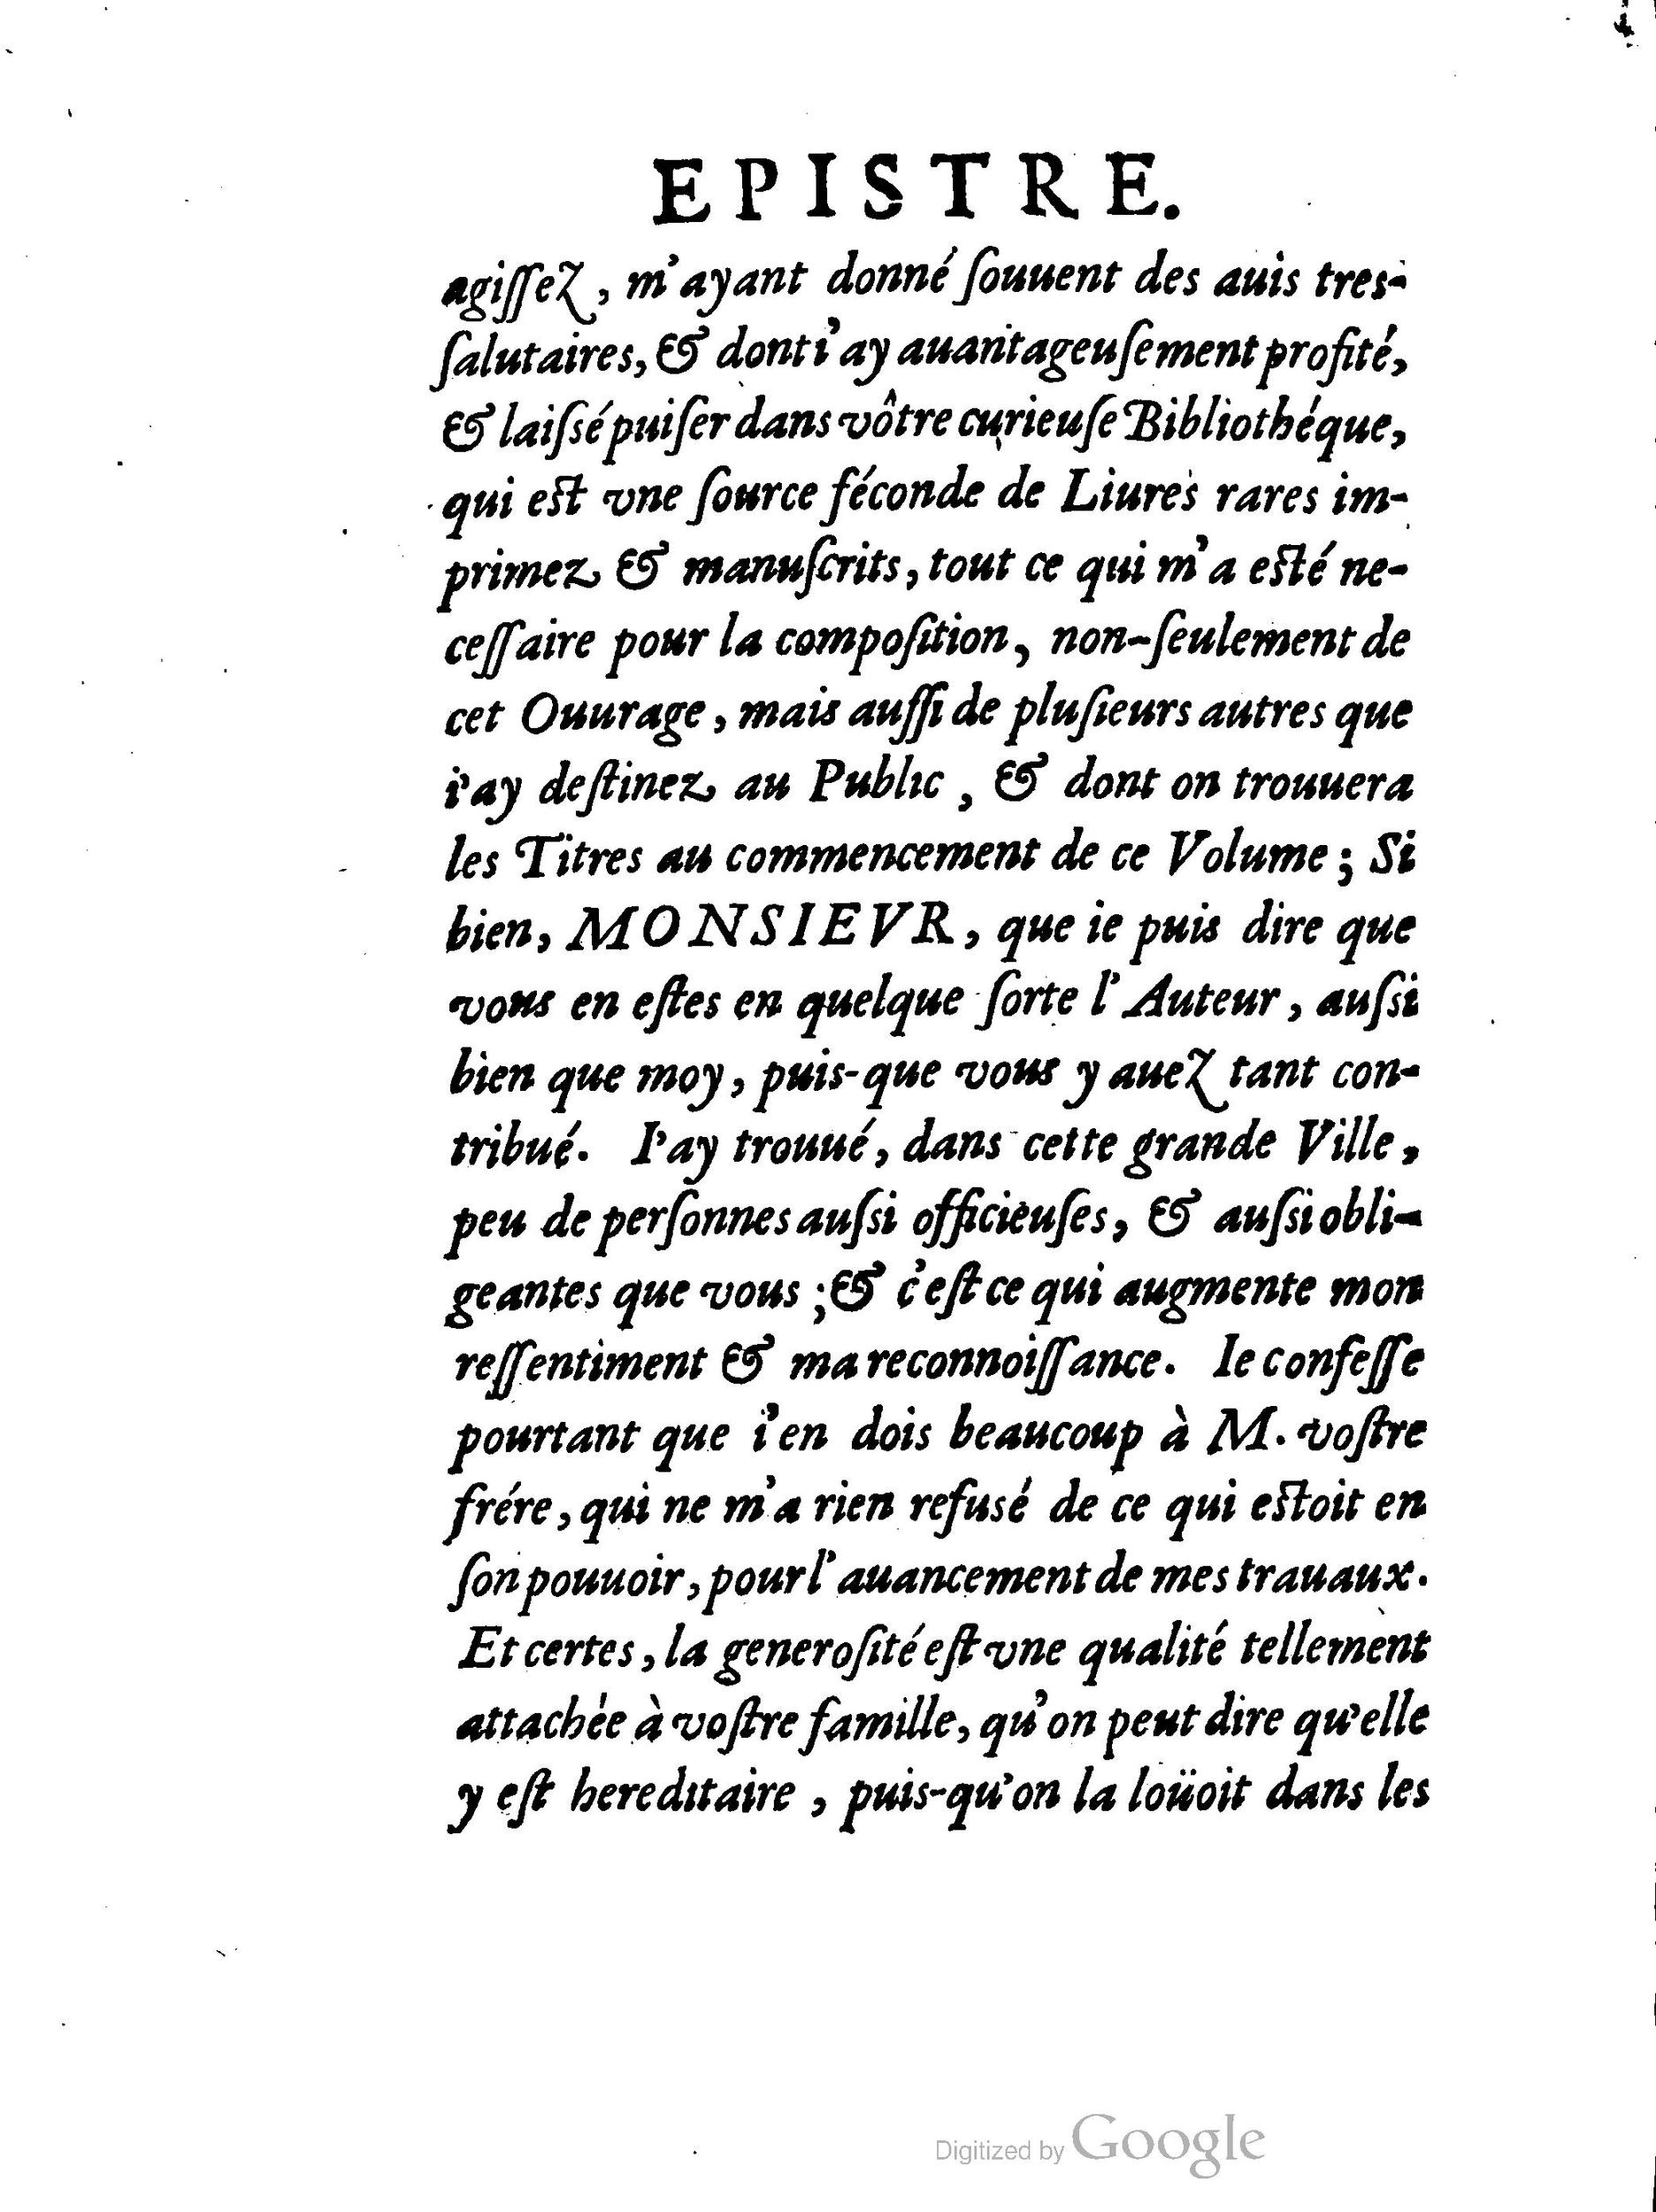 EPISTRE.
agiſſez, m'ayant donné ſouuent des auis tres-
ſalutaires, & dont i'ay auantageuſement profité,
& laiſsé puiſer dans vôtre curieuſe Bibliothéque,
qui est vne ſource féconde de Liures rares im-
primez & manuſcrits, tout ce qui m'a esté ne-
ceſſaire pour la compoſition, non-ſeulement de
cet Ouurage, mais auſſi de pluſieurs autres que
i'ay deſtinez au Public, & dont on trouuera
les Titres au commencement de ce Volume; Si
bien, MONSIEVR, que ie puis dire que
vous en eſtes en quelque ſorte l'Auteur, auſsi
bien que moy, puis-que vous y auez tant con-
tribué. I'ay trouué, dans cette grande Ville,
peu de perſonnes auſsi officieuſes, & auſsi obli-
geantes que vous; & c'eſt ce qui augmente mon
reſſentiment & ma reconnoiſſance. Ie confeſſe
pourtant que i'en dois beaucoup à M. voſtre
frére, qui ne m'a rien refusé de ce qui estoit en
ſon pouuoir, pour l'auancement de mes trauaux.
Et certes, la generoſité eſt vne qualité tellement
attachée à voſtre famille, qu'on peut dire qu'elle
y eſt hereditaire, puis-qu'on la loüoit dans les
Digitized by Google